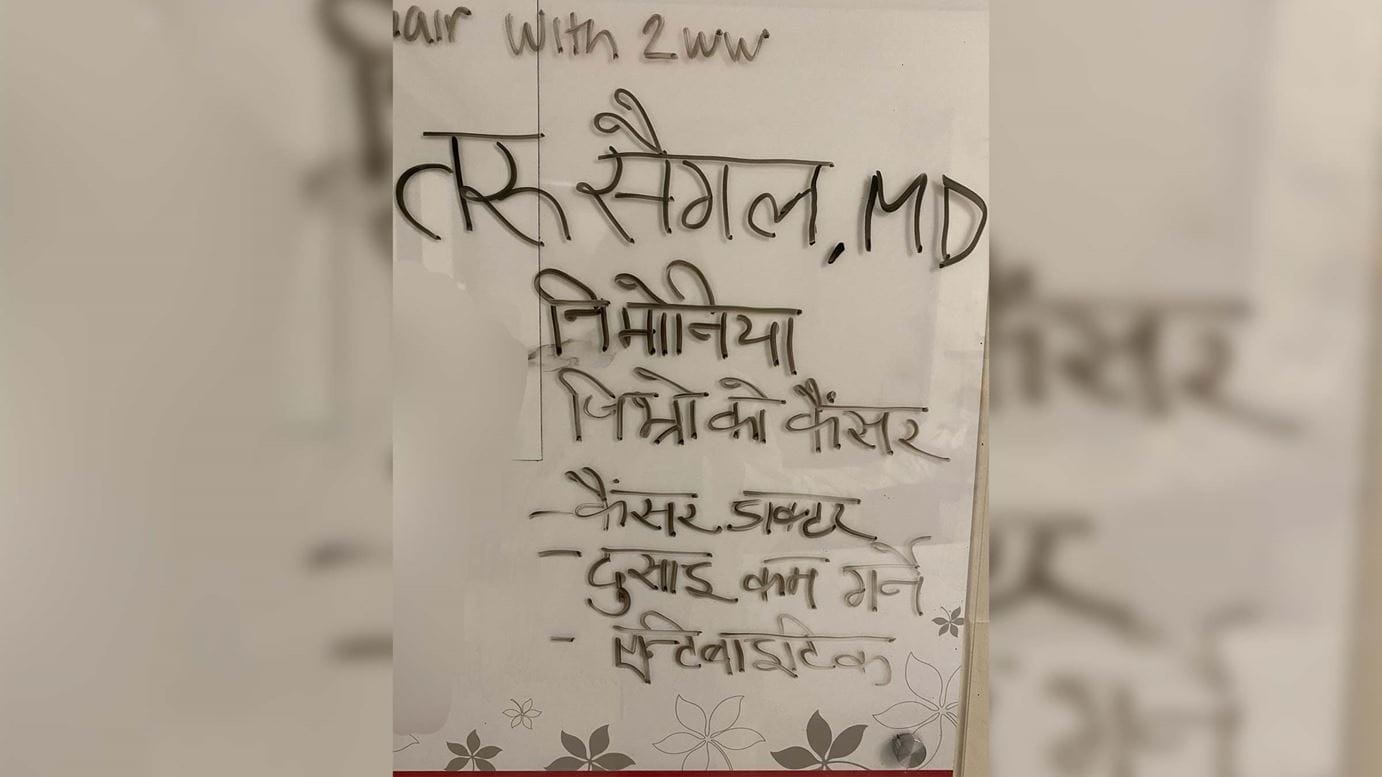 air With 2ww
तरु सैगल, MD
निमोनिया
जिभ्रो को कैंसर
- कैंसर डाक्टर
- दुसाइ कम गर्ने
- एन्टिबाइटिक